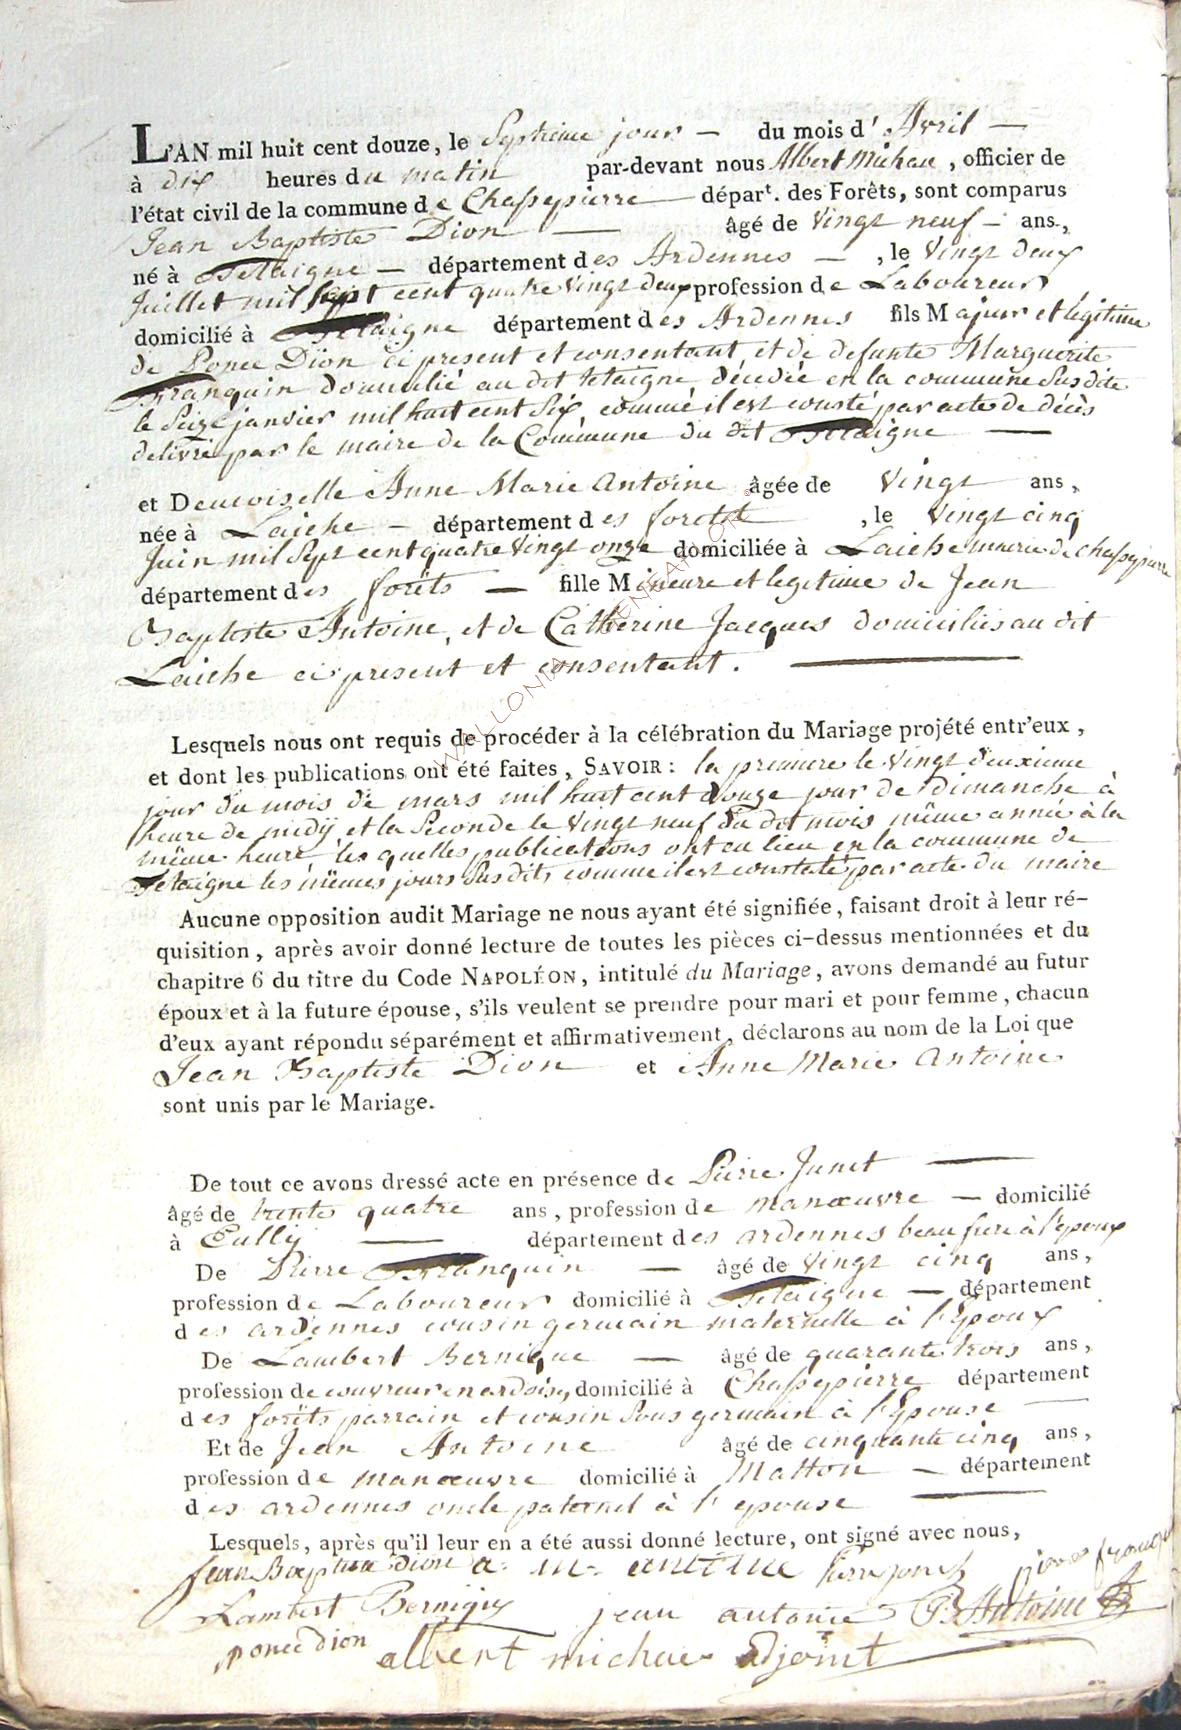 L'AN mil huit cent douze, le Septieme jour — du mois d'Avril —
à dix heures du matin par-devant nous Albert Michau, officier de
l'état civil de la commune de Chassepierre — départ. des Forêts, sont comparus
Jean Baptiste Dion — âgé de Vingt neuf — ans,
né à Tetaigne — département des Ardennes —, le Vingt deux
Juillet mil sept cent quatre Vingt deux profession de Laboureur
domicilié à Tetaigne département des Ardennes fils Majeur et légitime
de Ponce Dion ci present et consentant, et de defunte Marguerite
Franquin domicilié au dit tetaigne décédée en la commune Susdite
le Seize janvier mil huit cent Six, comme il est consté par acte de décès
delivré par le maire de la Commune du dit Tetaigne —
et Demoiselle Anne Marie Antoine âgée de Vingt ans,
née à Laiche — département des forêts, le Vingt cinq
Juin mil Sept cent quatre Vingt onze domiciliée à Laiche mairie de Chassepierre
département des forêts — fille Mineure et legitime de Jean
Baptiste Antoine, et de Catherine Jacques domiciliés au dit
Laiche ci present et consentant. —
Lesquels nous ont requis de procéder à la célébration du Mariage projété entr'eux,
et dont les publications ont été faites, SAVOIR : la premiere le Vingt deuxieme
jour du mois de mars mil huit cent douze jour de dimanche à
heure de midÿ, et la Seconde le Vingt neuf du dit mois même année à la
même heure, les quelles publications ont eu lieu en la commune de
Tetaigne les mêmes jours Susdits, comme il est constaté par acte du maire
Aucune opposition audit Mariage ne nous ayant été signifiée, faisant droit à leur ré-
quisition, après avoir donné lecture de toutes les pièces ci-dessus mentionnées et du
chapitre 6 du titre du Code NAPOLÉON, intitulé du Mariage, avons demandé au futur
époux et à la future épouse, s'ils veulent se prendre pour mari et pour femme, chacun
d'eux ayant répondu séparément et affirmativement, déclarons au nom de la Loi que
Jean Baptiste Dion et Anne Marie Antoine
sont unis par le Mariage.
De tout ce avons dressé acte en présence de Pierre Junet —
âgé de trente quatre ans, profession de manœuvre — domicilié
à Eullÿ — département des ardennes beau frere à l'epoux
De Pierre Franquin — âgé de Vingt cinq ans,
profession de Laboureur domicilié à Tetaigne — département
des ardennes cousin germain maternelle à l'Epoux
De Lambert Bernique — âgé de quarante trois ans,
profession de couvreur en ardoises, domicilié à Chassepierre département
des forêts parrain et cousin Sous germain à l'Epouse —
Et de Jean Antoine âgé de cinquante cinq ans,
profession de manœuvre domicilié à Matton — département
des ardennes oncle paternel à l'epouse —
Lesquels, après qu'il leur en a été aussi donné lecture, ont signé avec nous,
Jean Baptiste dion a. m. antoine
Lambert Bernique jean antoine Antoine
ponce dion albert michau adjoint
WALLONIA GENEALOGIE